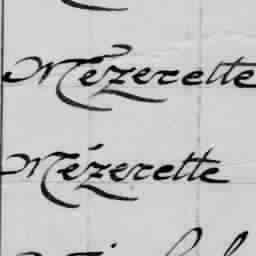 Mézerette
Mézerette